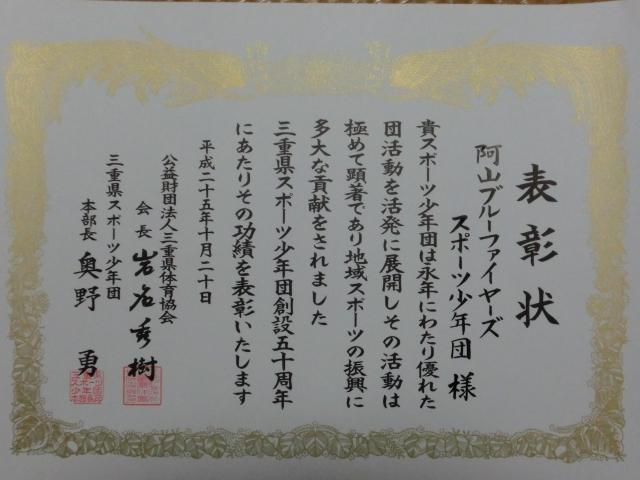 表彰状
阿山ブルーファイヤーズ
スポーツ少年団 様
貴スポーツ少年団は永年にわたり優れた
団活動を活発に展開しその活動は
極めて顕著であり地域スポーツの振興に
多大な貢献をされました
三重県スポーツ少年団創設五十周年
にあたりその功績を表彰いたします
平成二十五年十月二十日
公益財団法人三重県体育協会
会長 岩名秀樹
三重県スポーツ少年団
本部長 奥野 勇